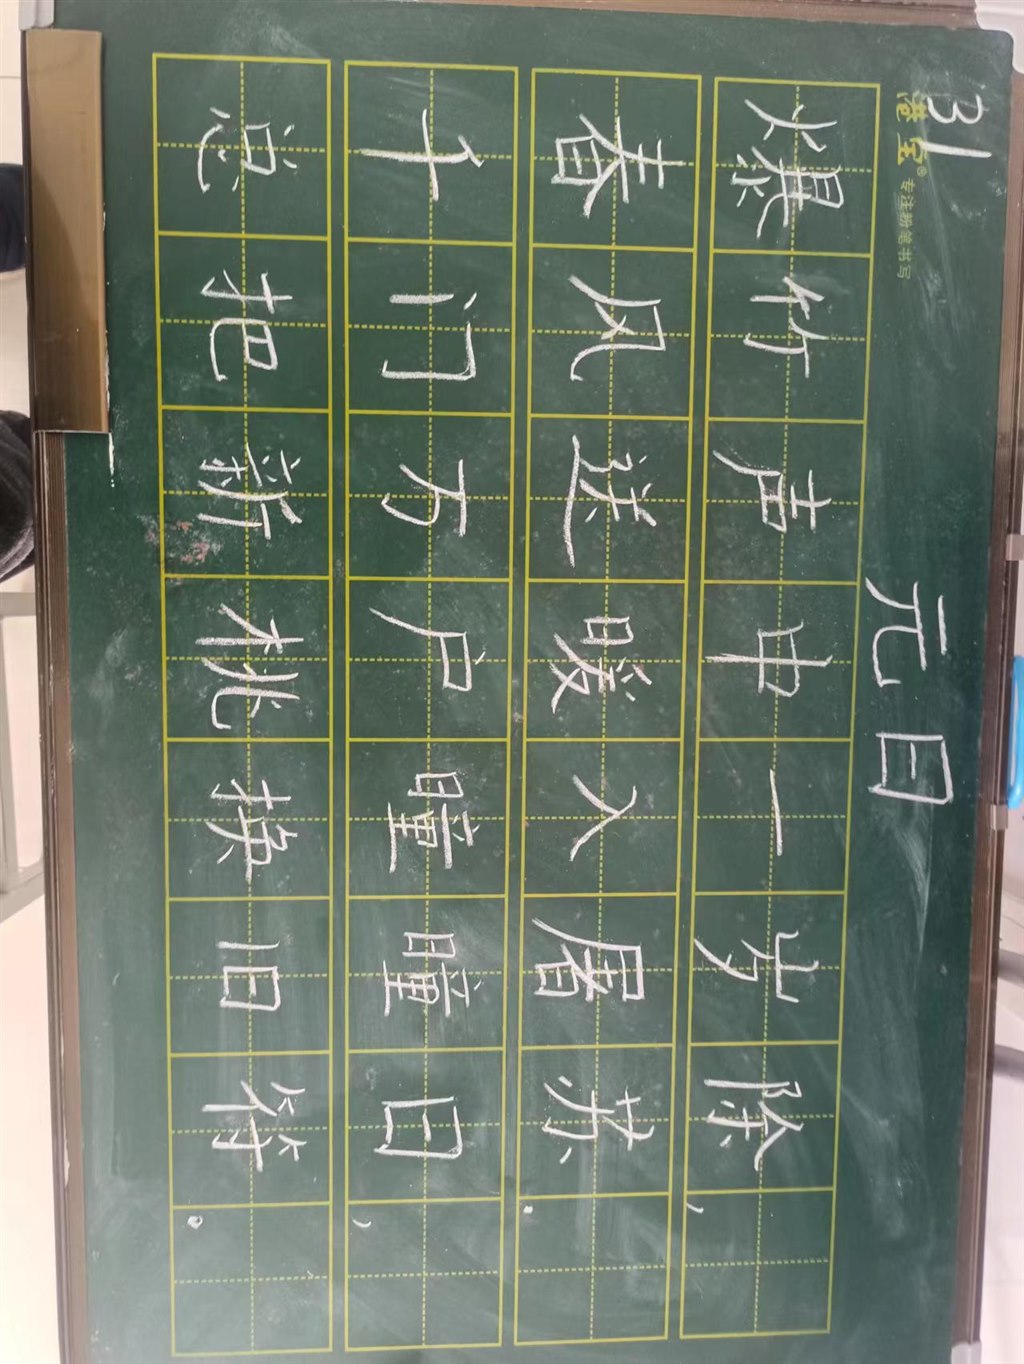 31
港宝® 专注粉笔书写
元日
爆竹声中一岁除,
春风送暖入屠苏。
千门万户曈曈日,
总把新桃换旧符。